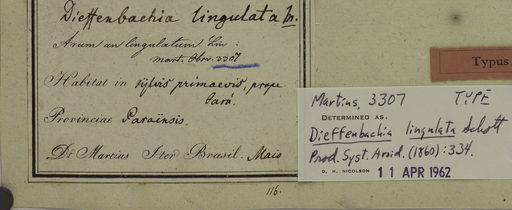 Dieffenbachia lingulata M.
Arum an lingulatum Lin:
mart. Obs. 3307
Habitat in sylvis primaevis, prope
Pará.
Provinciae Paraënsis.
Dr Martius Iter Brasil. Maio
116.
Typus
Martius, 3307 TYPE
DETERMINED AS,
Dieffenbachia lingulata Schott
Prod. Syst. Aroid. (1860): 334.
D. H. NICOLSON 11 APR 1962